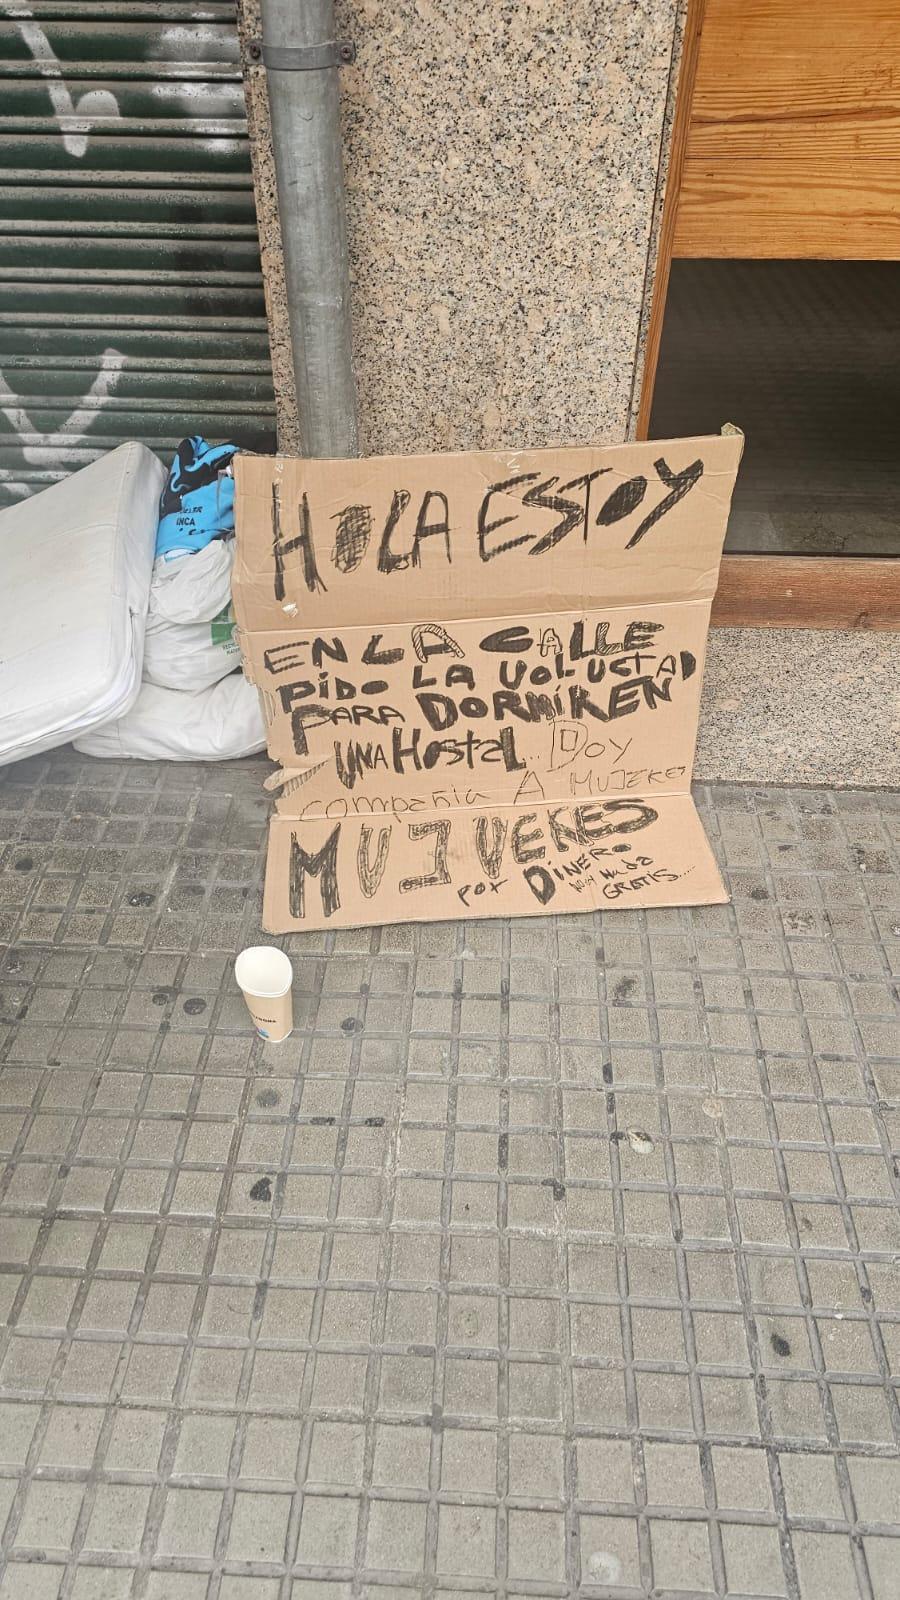 HOLA ESTOY
EN LA CALLE
PIDO LA VOLUCTAD
PARA DORMIR EN
UNA HOSTAL.. DOY
compañia A MUJERES
MUJUERES
por DINERO
GRATIS.....